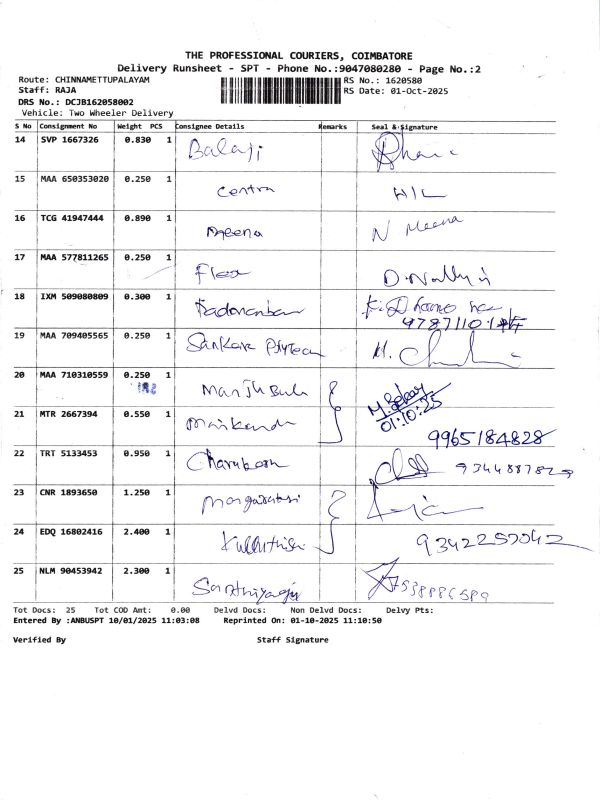 THE PROFESSIONAL COURIERS, COIMBATORE
Delivery Runsheet - SPT - Phone No.:9047080280 - Page No.:2
Route: CHINNAMETTUPALAYAM RS No.: 1620580
Staff: RAJA RS Date: 01-Oct-2025
DRS No.: DCJB162058002
Vehicle: Two Wheeler Delivery
S No Consignment No Weight PCS Consignee Details Remarks Seal & Signature
14 SVP 1667326 0.830 1 Balaji
15 MAA 650353020 0.250 1 Centra H/L
16 TCG 41947444 0.890 1 Meena N Meena
17 MAA 577811265 0.250 1 Flex
18 IXM 509080809 0.300 1
19 MAA 709405565 0.250 1 Sankara
20 MAA 710310559 0.250 1 Manju
01:10:25
21 MTR 2667394 0.550 1
9965184828
22 TRT 5133453 0.950 1
23 CNR 1893650 1.250 1
24 EDQ 16802416 2.400 1
25 NLM 90453942 2.300 1
Tot Docs: 25 Tot COD Amt: 0.00 Delvd Docs: Non Delvd Docs: Delvy Pts:
Entered By :ANBUSPT 10/01/2025 11:03:08 Reprinted On: 01-10-2025 11:10:50
Verified By Staff Signature